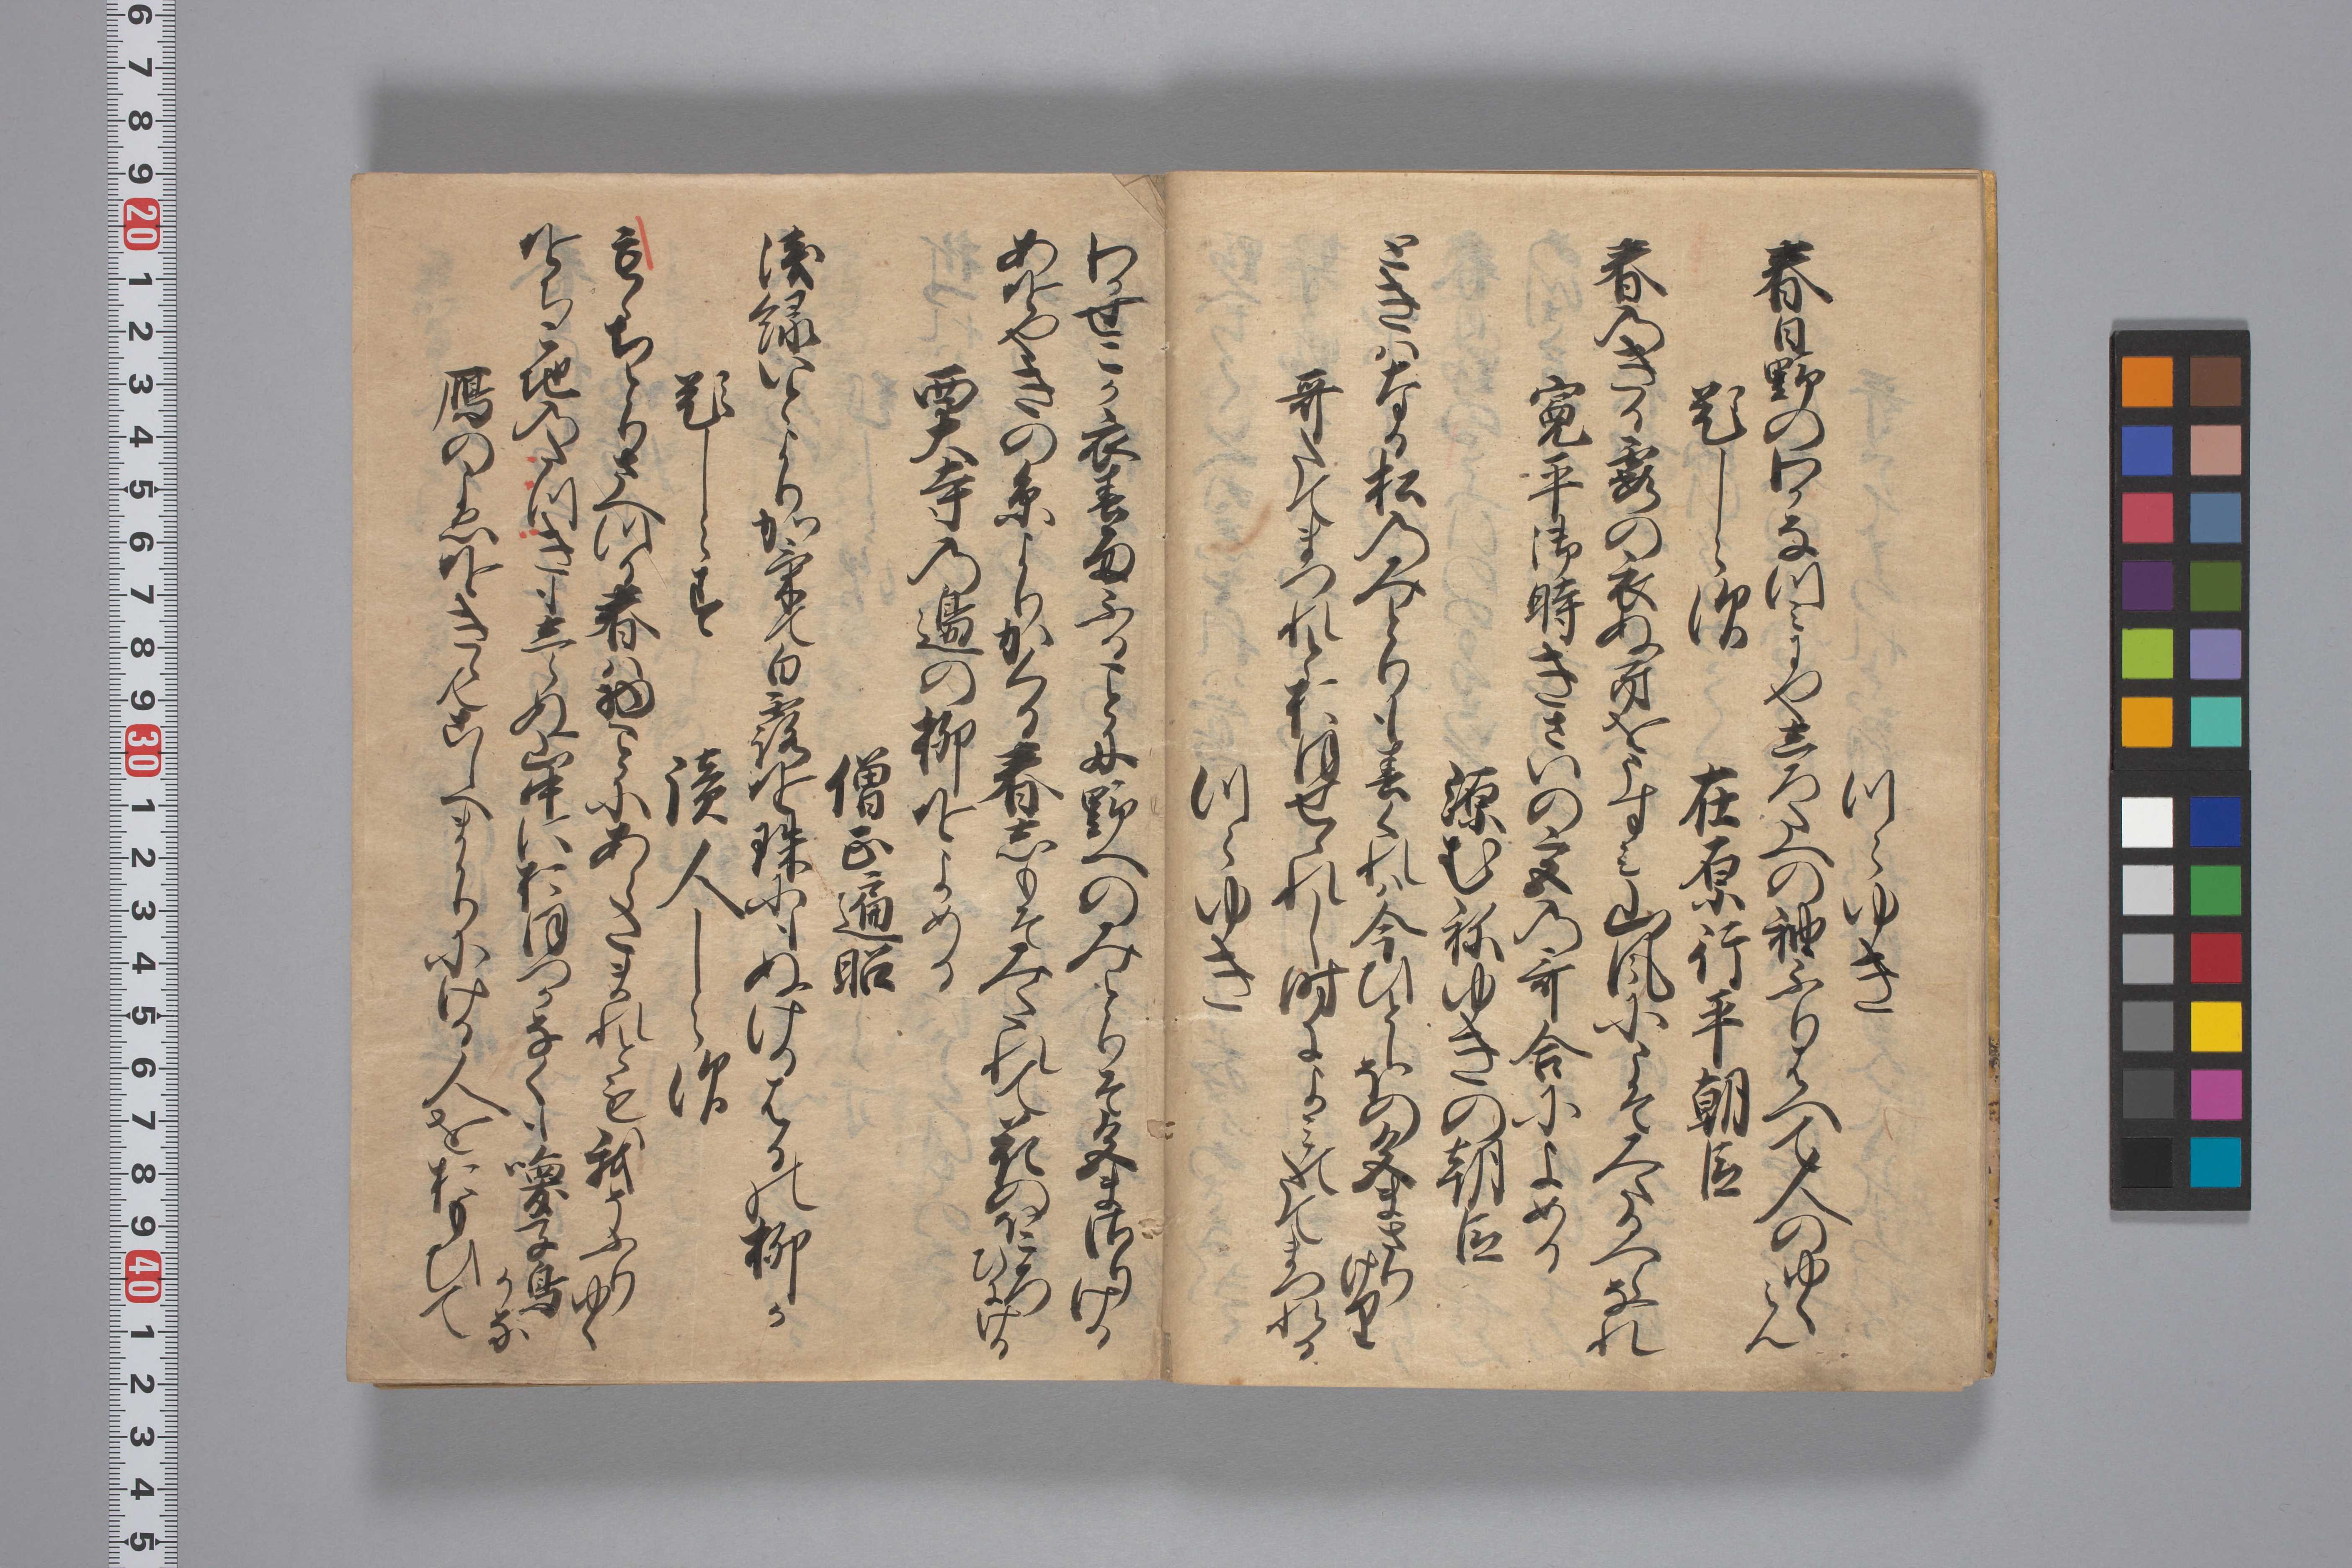 つらゆき
春日野のわかなつみにや志ろたへの袖ふりはへて人のゆくらん
題しらす
在原行平朝臣
春のきる霞の衣ぬきをうすみ山風にこそみたるへらなれ
寛平御時きさいの宮の哥合によめる
源むねゆきの朝臣
ときはなる松のみとりも春くれは今ひとしほの色まさりけり
哥たてまつれとおほせられし時によみてたてまつれる
つらゆき
わかせこか衣春雨ふることに野へのみとりそ色まさりける
あをやきの糸よりかくる春しもそみたれて花のほころひにける
西大寺の邊の柳をよめる
僧正遍昭
浅緑いとよりかけて白露を珠にもぬける春の柳か
題しらす
讀人しらす
もゝちとりさへつる春は物ことにあらたまれとも我そふりゆく
をちこちのたつきもしらぬ山中におほつかなくも喚子鳥かな
鴈のこゑをきゝてこしへまかりにける人をおもひて